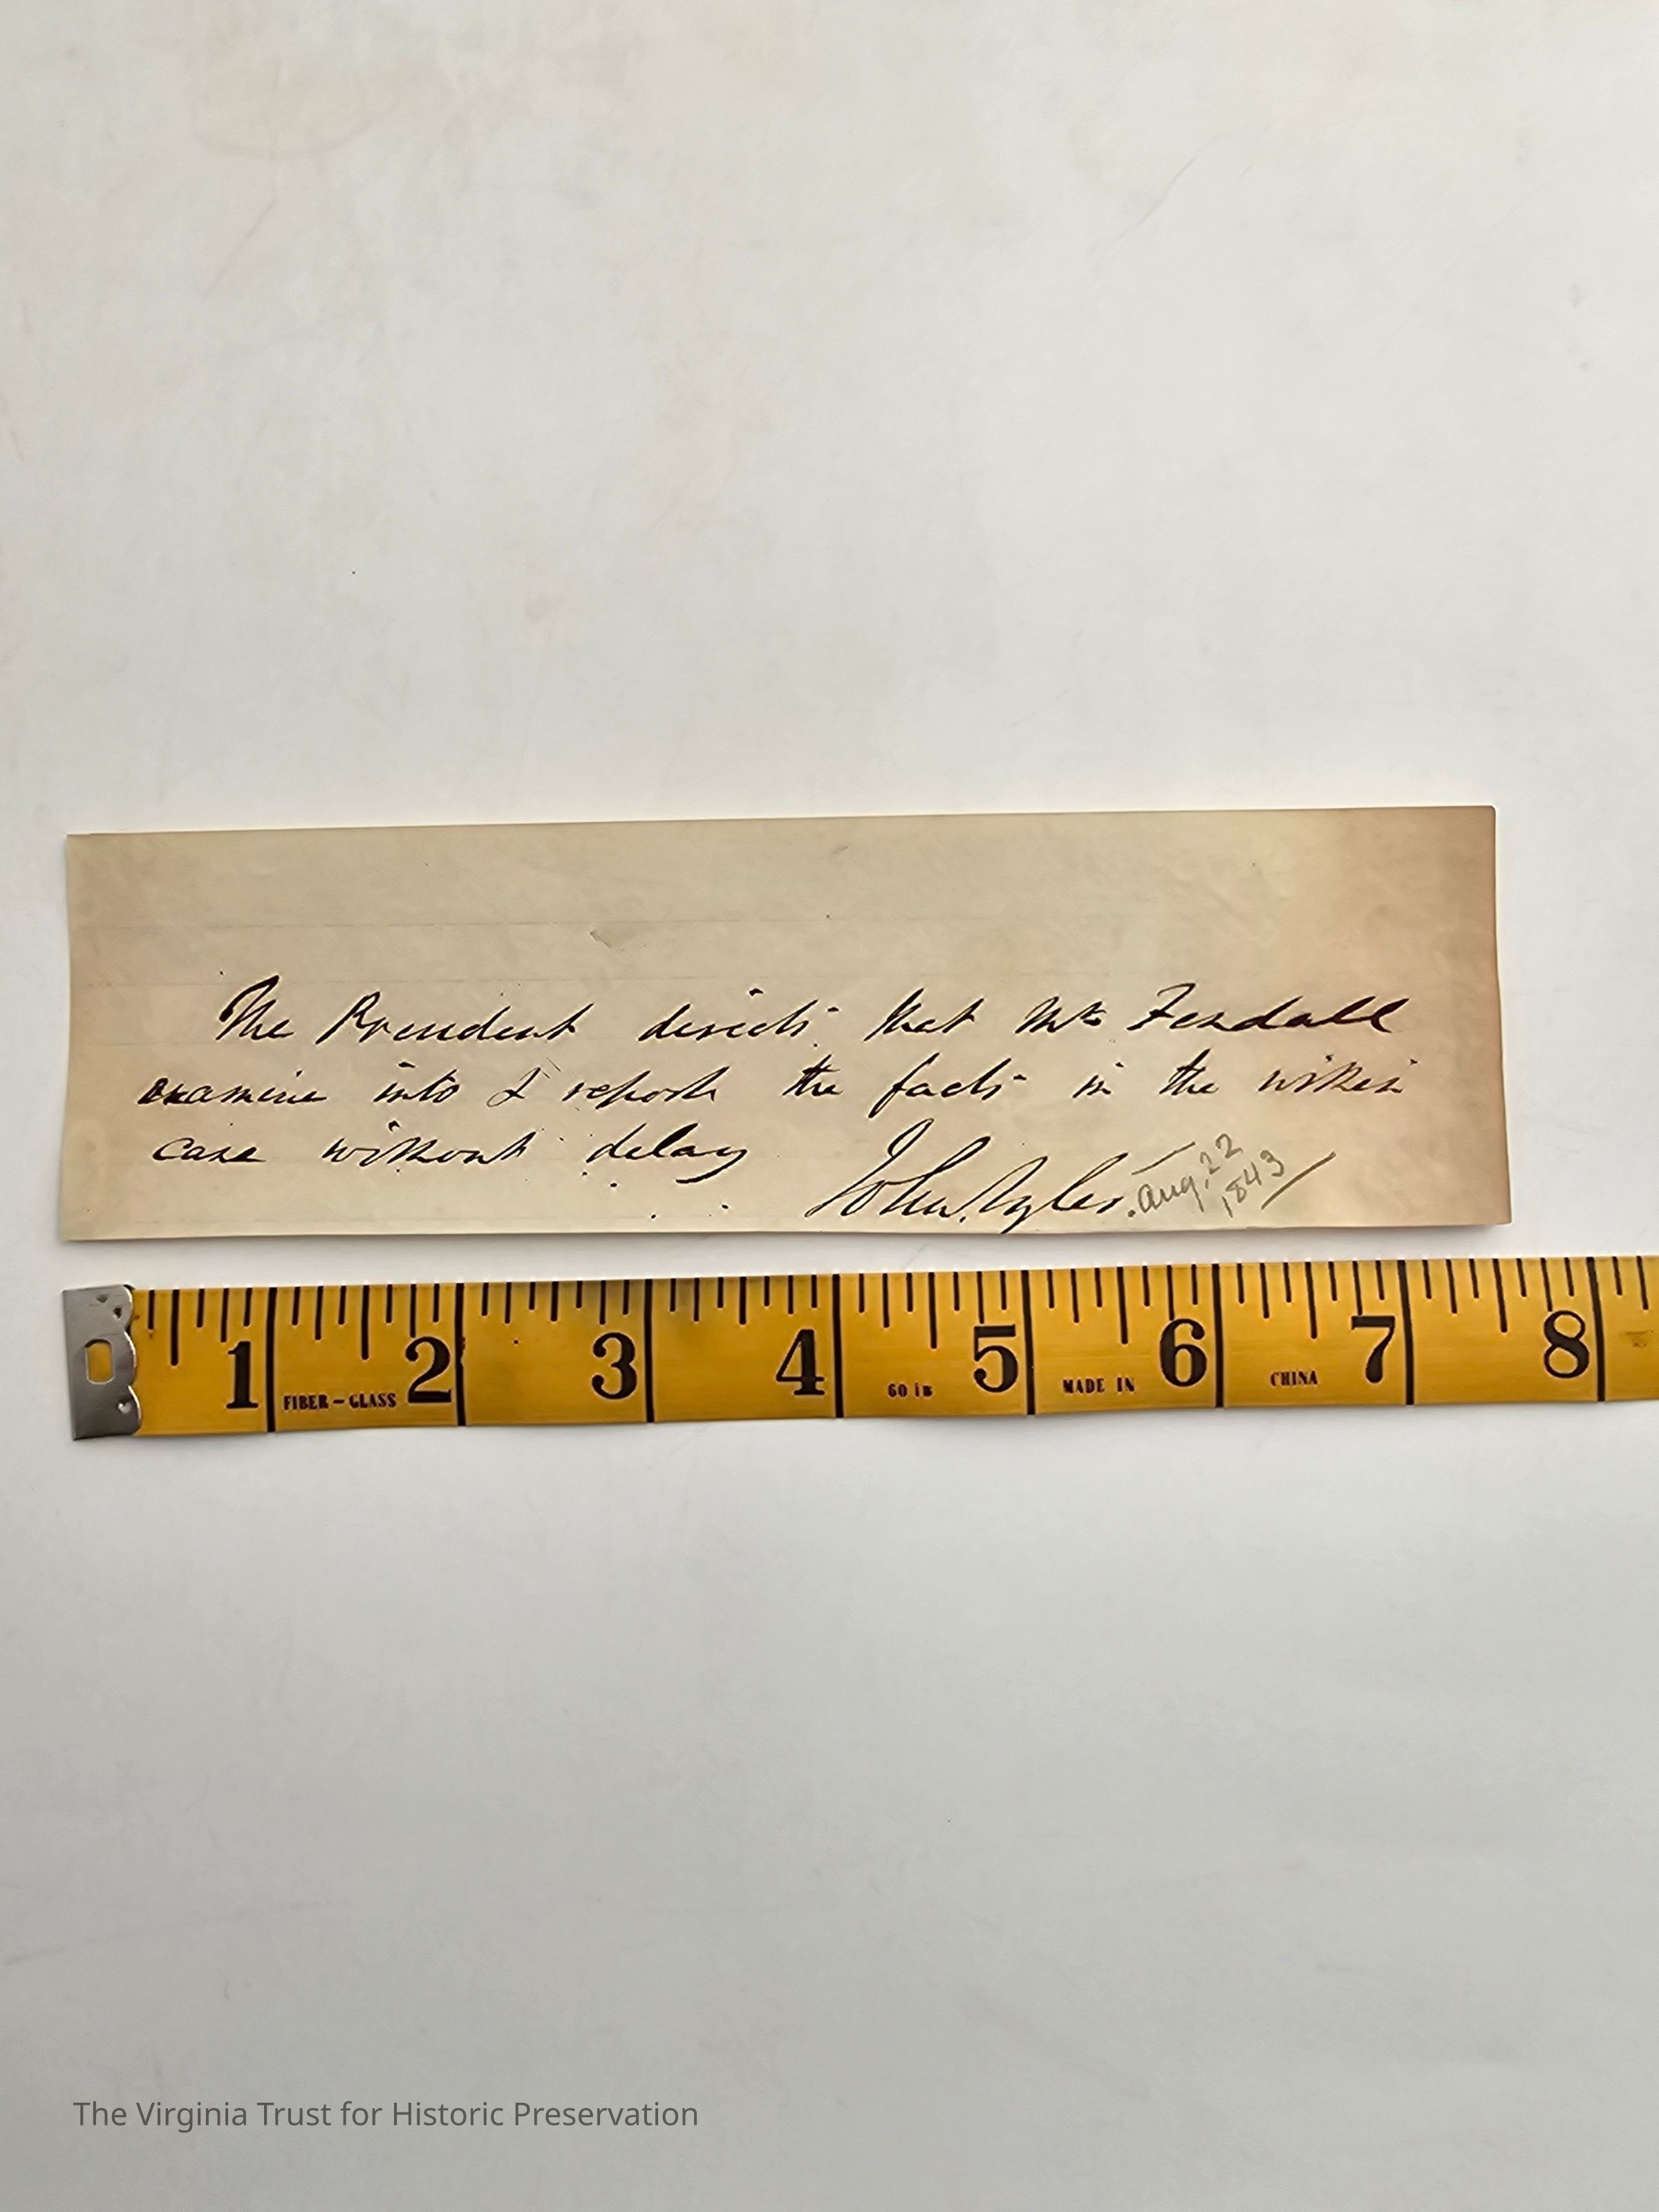 The President directs that Mr Fendall
examine into & report the facts in the within
case without delay
John Tyler. Aug. 22
1843
1 2 3 4 5 6 7 8
FIBER-GLASS 60 in MADE IN CHINA
The Virginia Trust for Historic Preservation